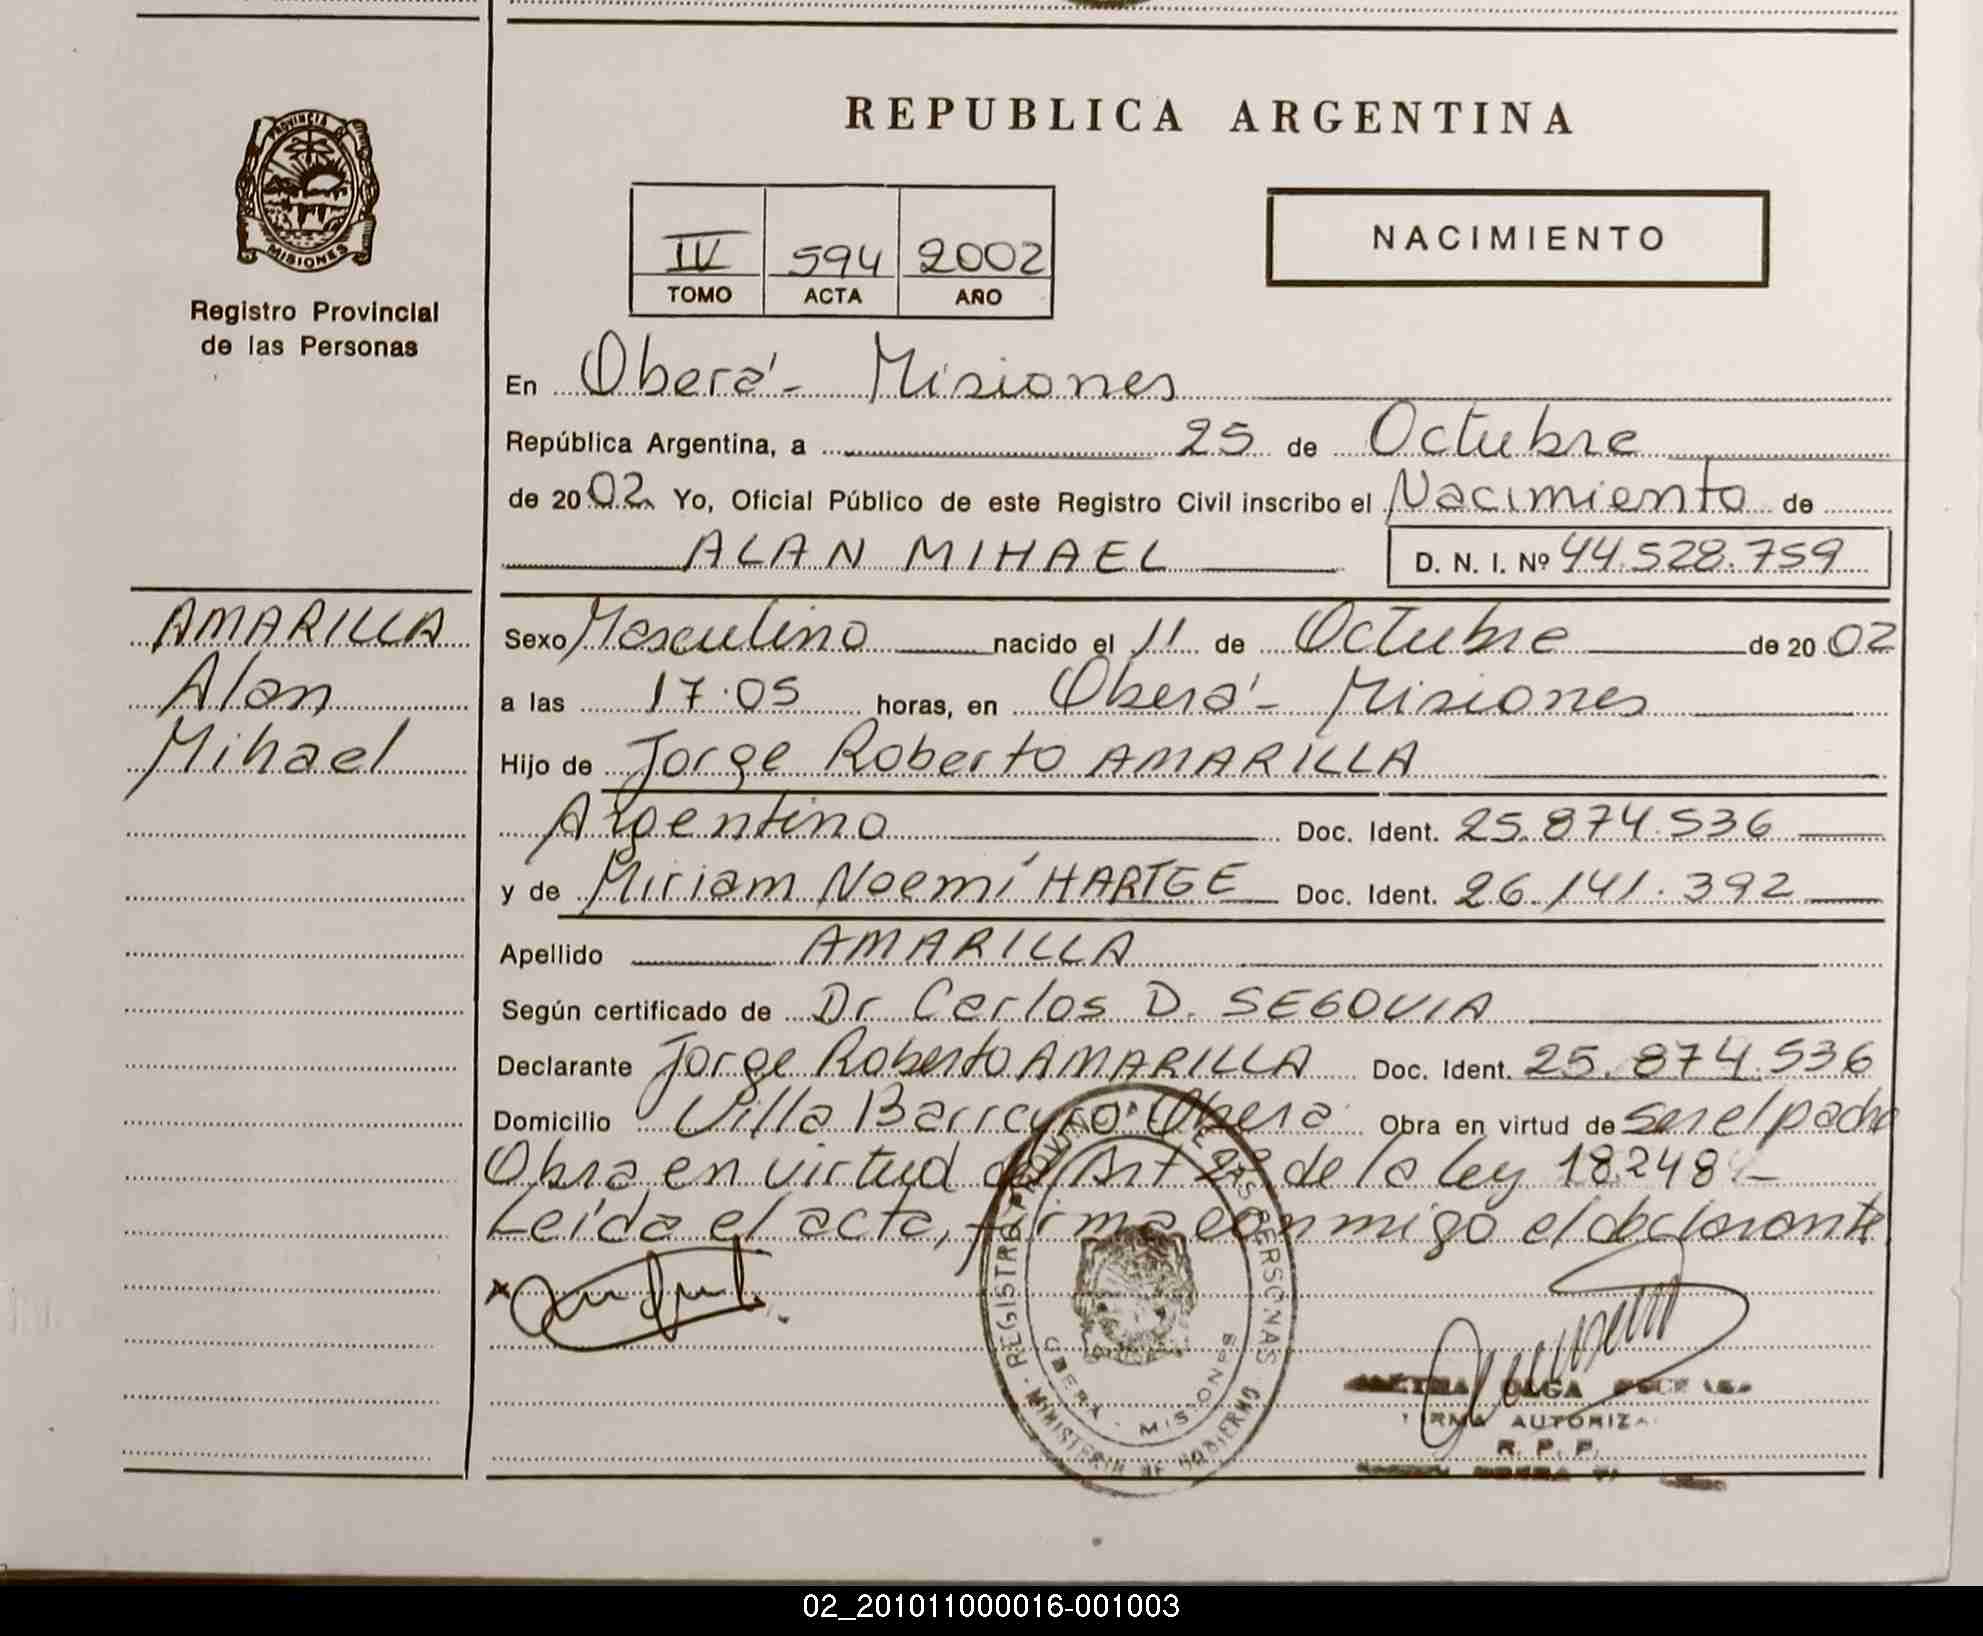 REPUBLICA ARGENTINA
PROVINCIA DE
MISIONES
Registro Provincial
de las Personas
IV 594 2002
TOMO ACTA AÑO
NACIMIENTO
En Oberá - Misiones
República Argentina, a 25 de Octubre
de 2002 Yo, Oficial Público de este Registro Civil inscribo el Nacimiento de
ALAN MIHAEL D. N. I. Nº 44.528.759
AMARILLA
Alan
Mihael
Sexo Masculino nacido el 11 de Octubre de 2002
a las 17.05 horas, en Oberá - Misiones
Hijo de Jorge Roberto AMARILLA
Argentino Doc. Ident. 25.874.536
y de Miriam Noemí HARTGE Doc. Ident. 26.141.392
Apellido AMARILLA
Según certificado de Dr Carlos D. SEGOVIA
Declarante Jorge Roberto AMARILLA Doc. Ident. 25.874.536
Domicilio Villa Barreyro Oberá Obra en virtud de ser el padre
Obra en virtud del Art 2º de la ley 18.248 -
Leída el acta, firma conmigo el declarante
REGISTRO PROVINCIAL DE LAS PERSONAS
MINISTERIO DE GOBIERNO
OBERA - MISIONES
OLGA
FIRMA AUTORIZA
R. P. P.
02_201011000016-001003